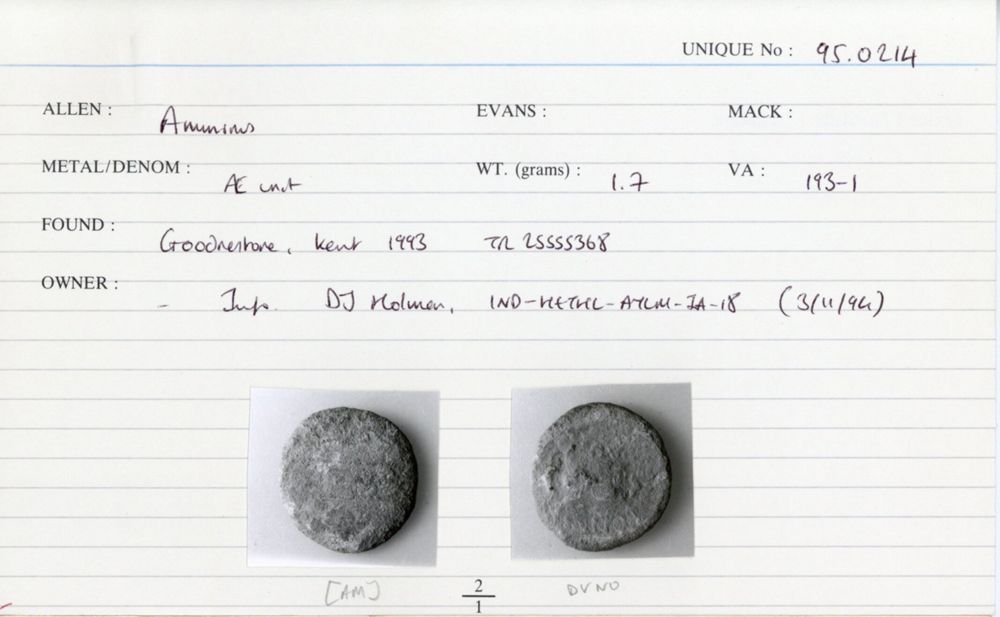 UNIQUE No : 95.0214
ALLEN : Amminus EVANS : MACK :
METAL/DENOM : Æ unit WT. (grams) : 1.7 VA : 193-1
FOUND : Goodnestone, Kent 1993 TR 25555368
OWNER : - Inf. DJ Holman, (3/11/94)
[AM] 2/1 DVNO